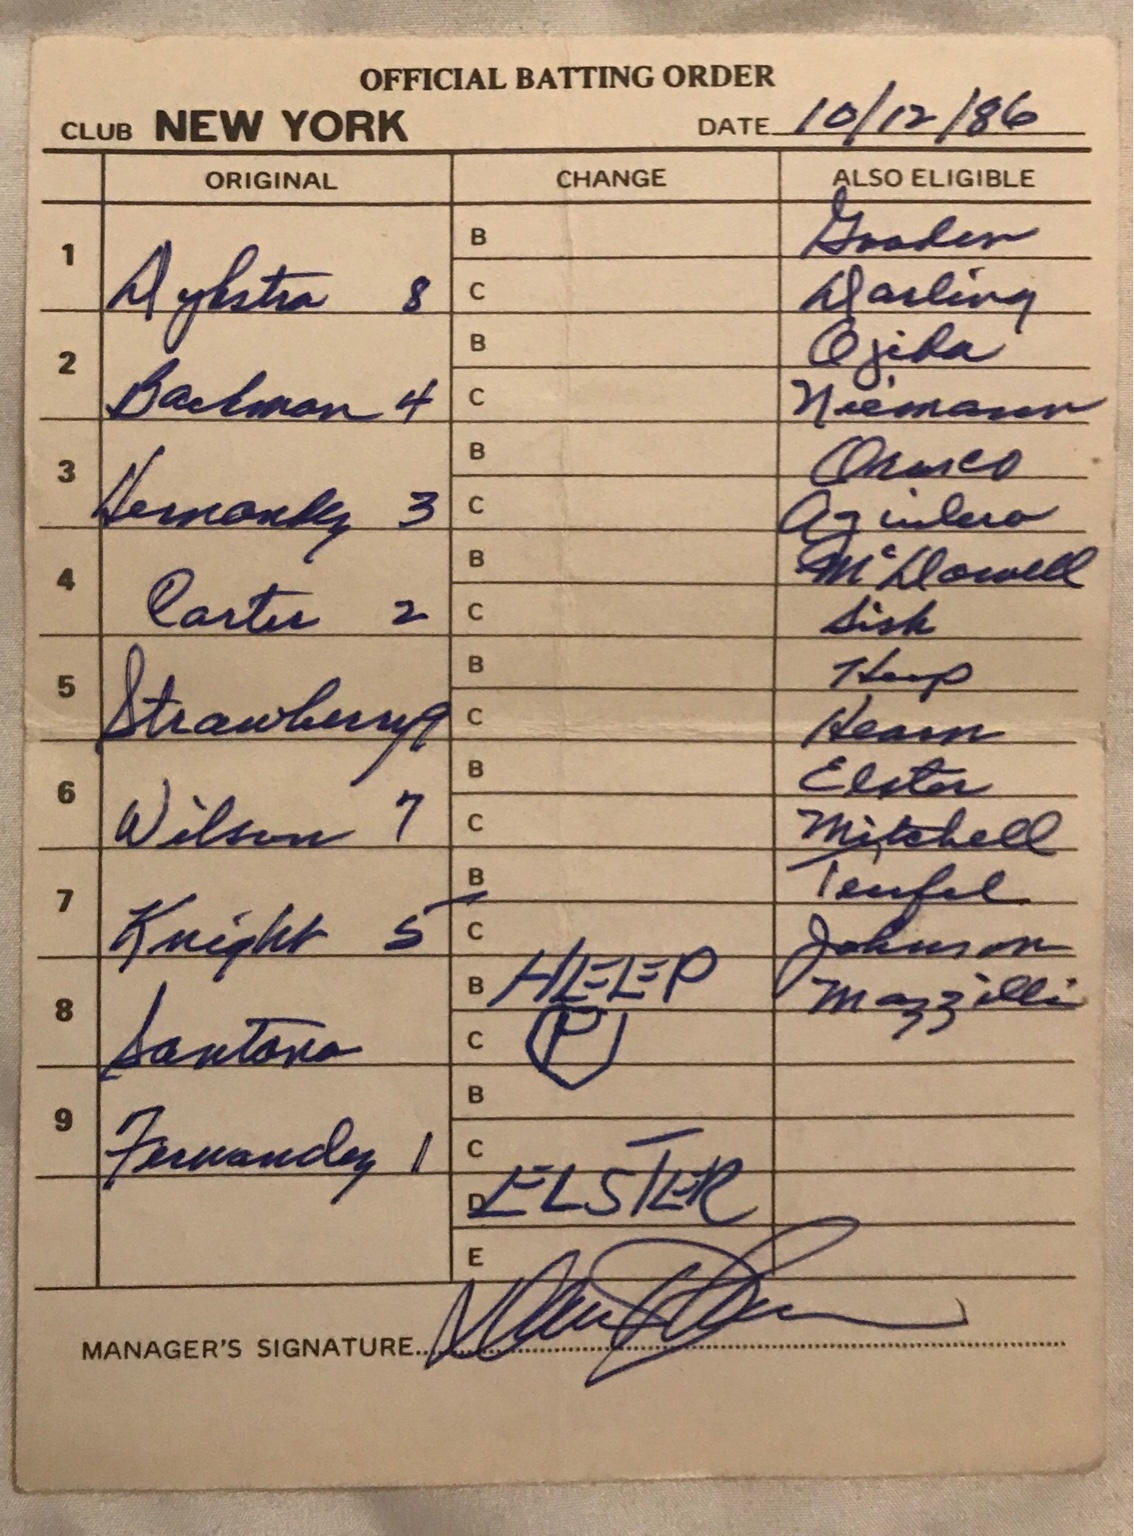 OFFICIAL BATTING ORDER
CLUB NEW YORK DATE 10/12/86
ORIGINAL CHANGE ALSO ELIGIBLE
1 Dykstra 8 B Gooden
C Darling
2 Backman 4 B Ojeda
C Niemann
3 Hernandez 3 B Orosco
C Aguilera
4 Carter 2 B McDowell
C Sisk
5 Strawberry 9 B Heep
C Hearn
6 Wilson 7 B Elster
C Mitchell
7 Knight 5 B Teufel
C Johnson
8 Santana B HEEP Mazzilli
C P
9 Fernandez 1 B
C
D ELSTER
E
MANAGER'S SIGNATURE